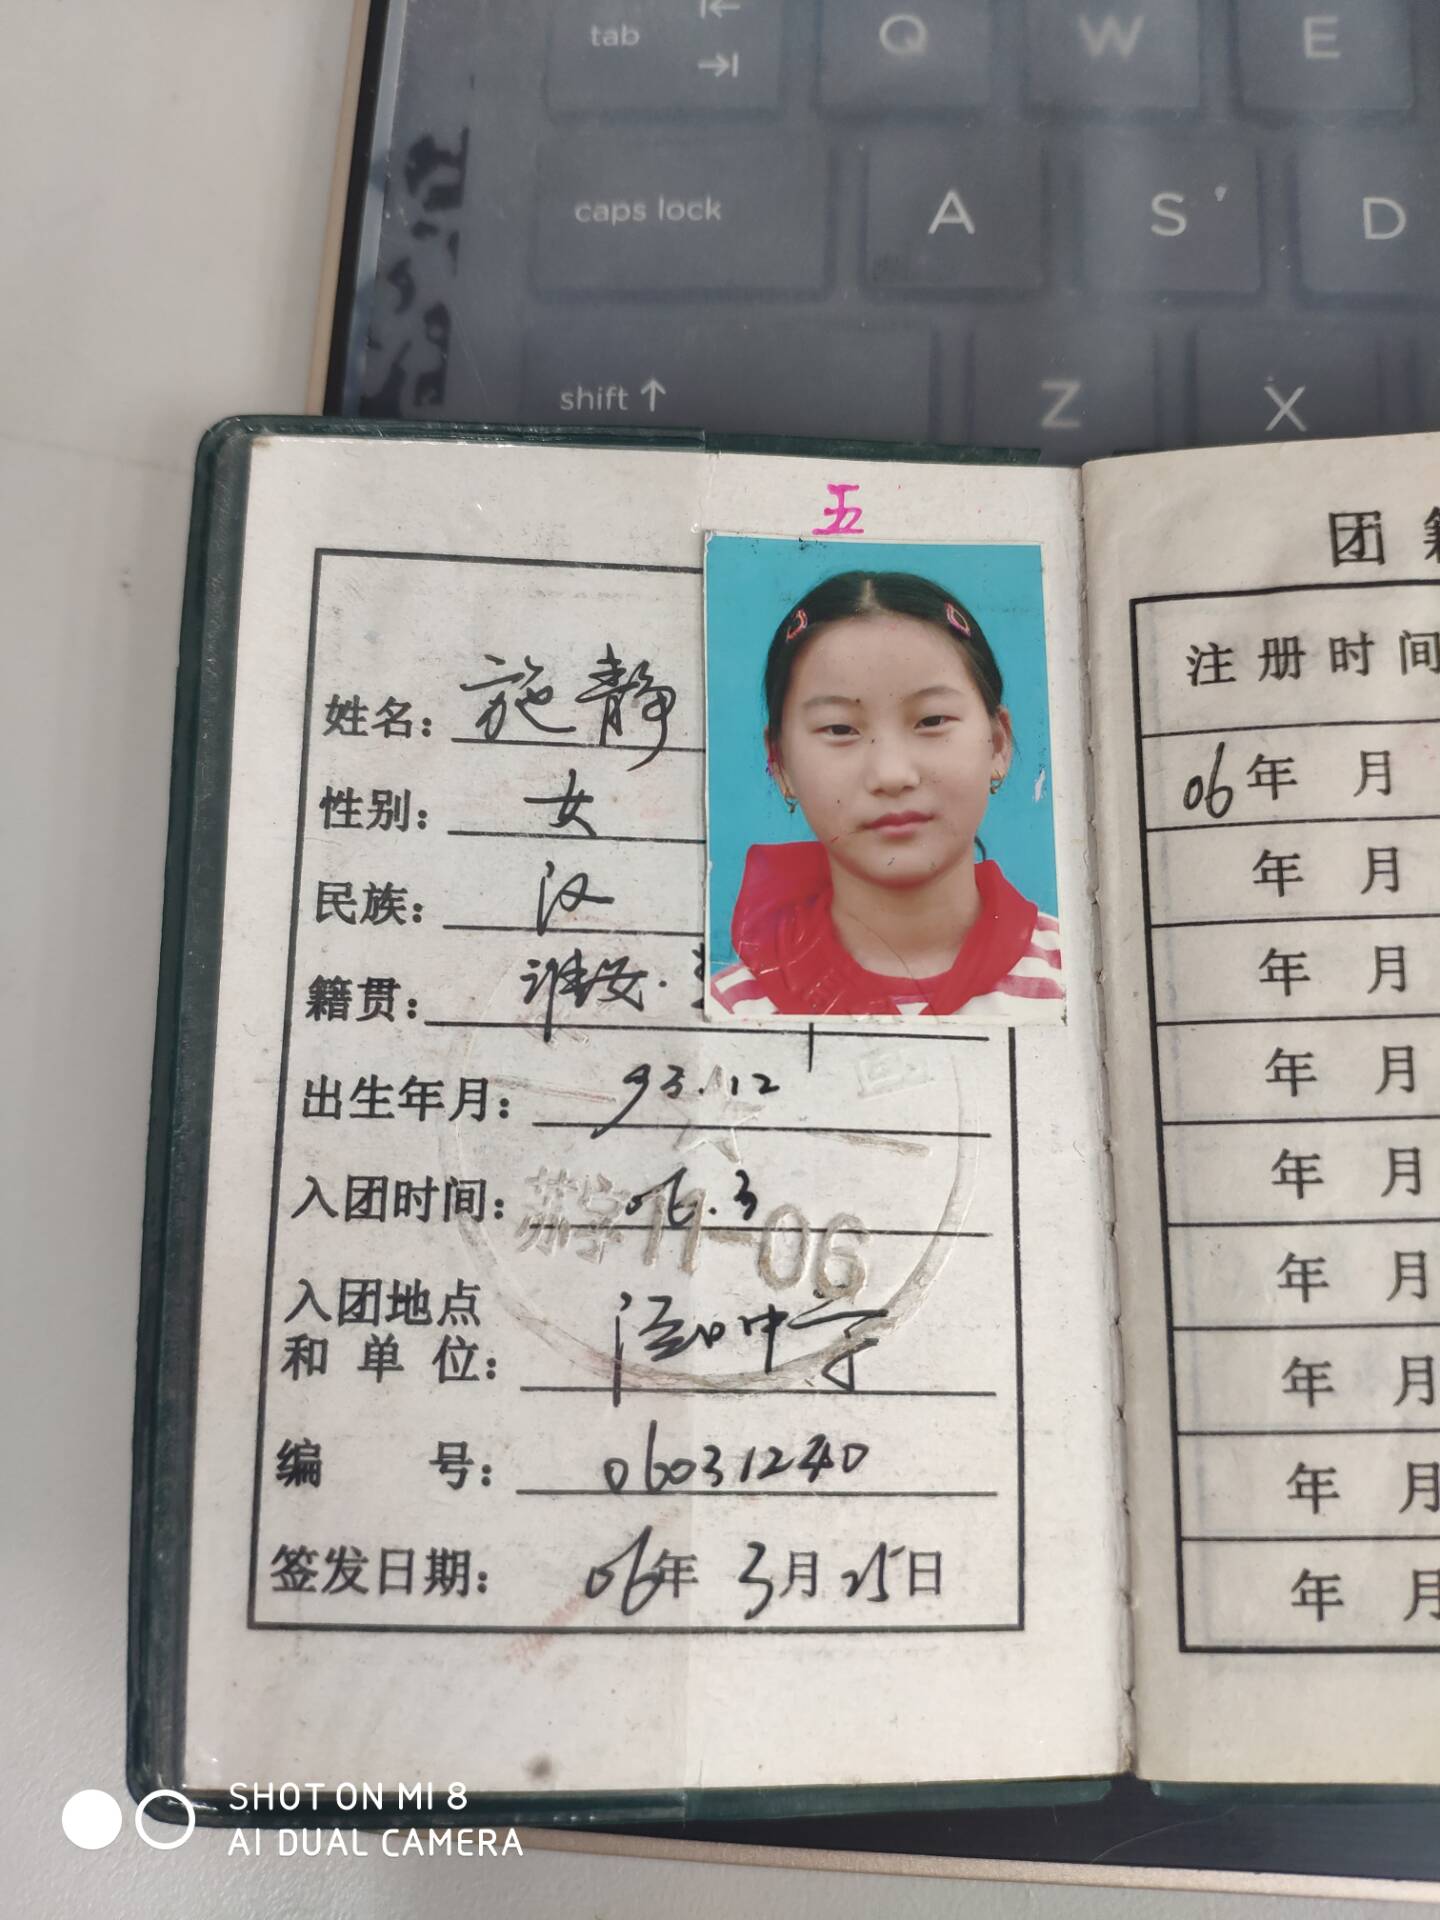 tab
Q W E
caps lock A S D
shift Z X
五
姓名：施静
性别：女
民族：汉
籍贯：淮安·
出生年月：93.12
入团时间：06.3
苏字11-06
入团地点
和单位：泾口中学
编号：06031240
签发日期：06年3月25日
团
注册时间
06年 月
年 月
年 月
年 月
年 月
年 月
年 月
年 月
年 月
SHOT ON MI 8
AI DUAL CAMERA